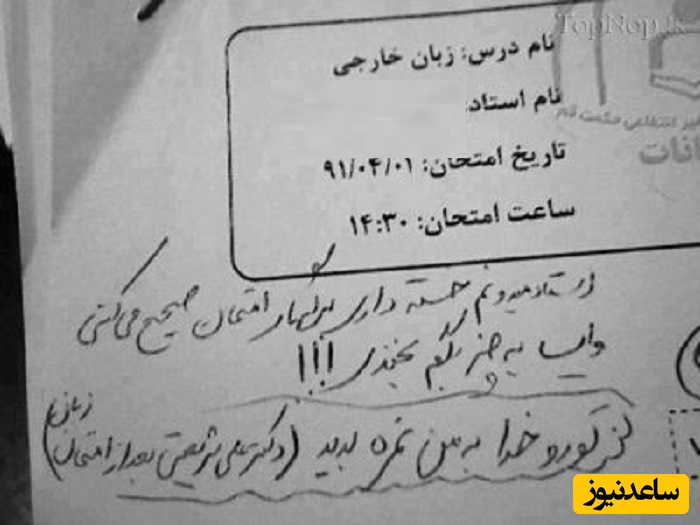 TopNop.ir
نام درس: زبان خارجی
نام استاد:
غیر انتفاعی حکمت قم
تاریخ امتحان: ۹۱/۰۴/۰۱
ساعت امتحان: ۱۴:۳۰
استاد میدونم خسته داری امتحان صحیح می‌کنی
وایسا یه چیز بگم بخندی !!!
تورو خدا به من نمره بدید (دکتر علی شریعتی بعد از امتحان زبان)
ساعدنیوز